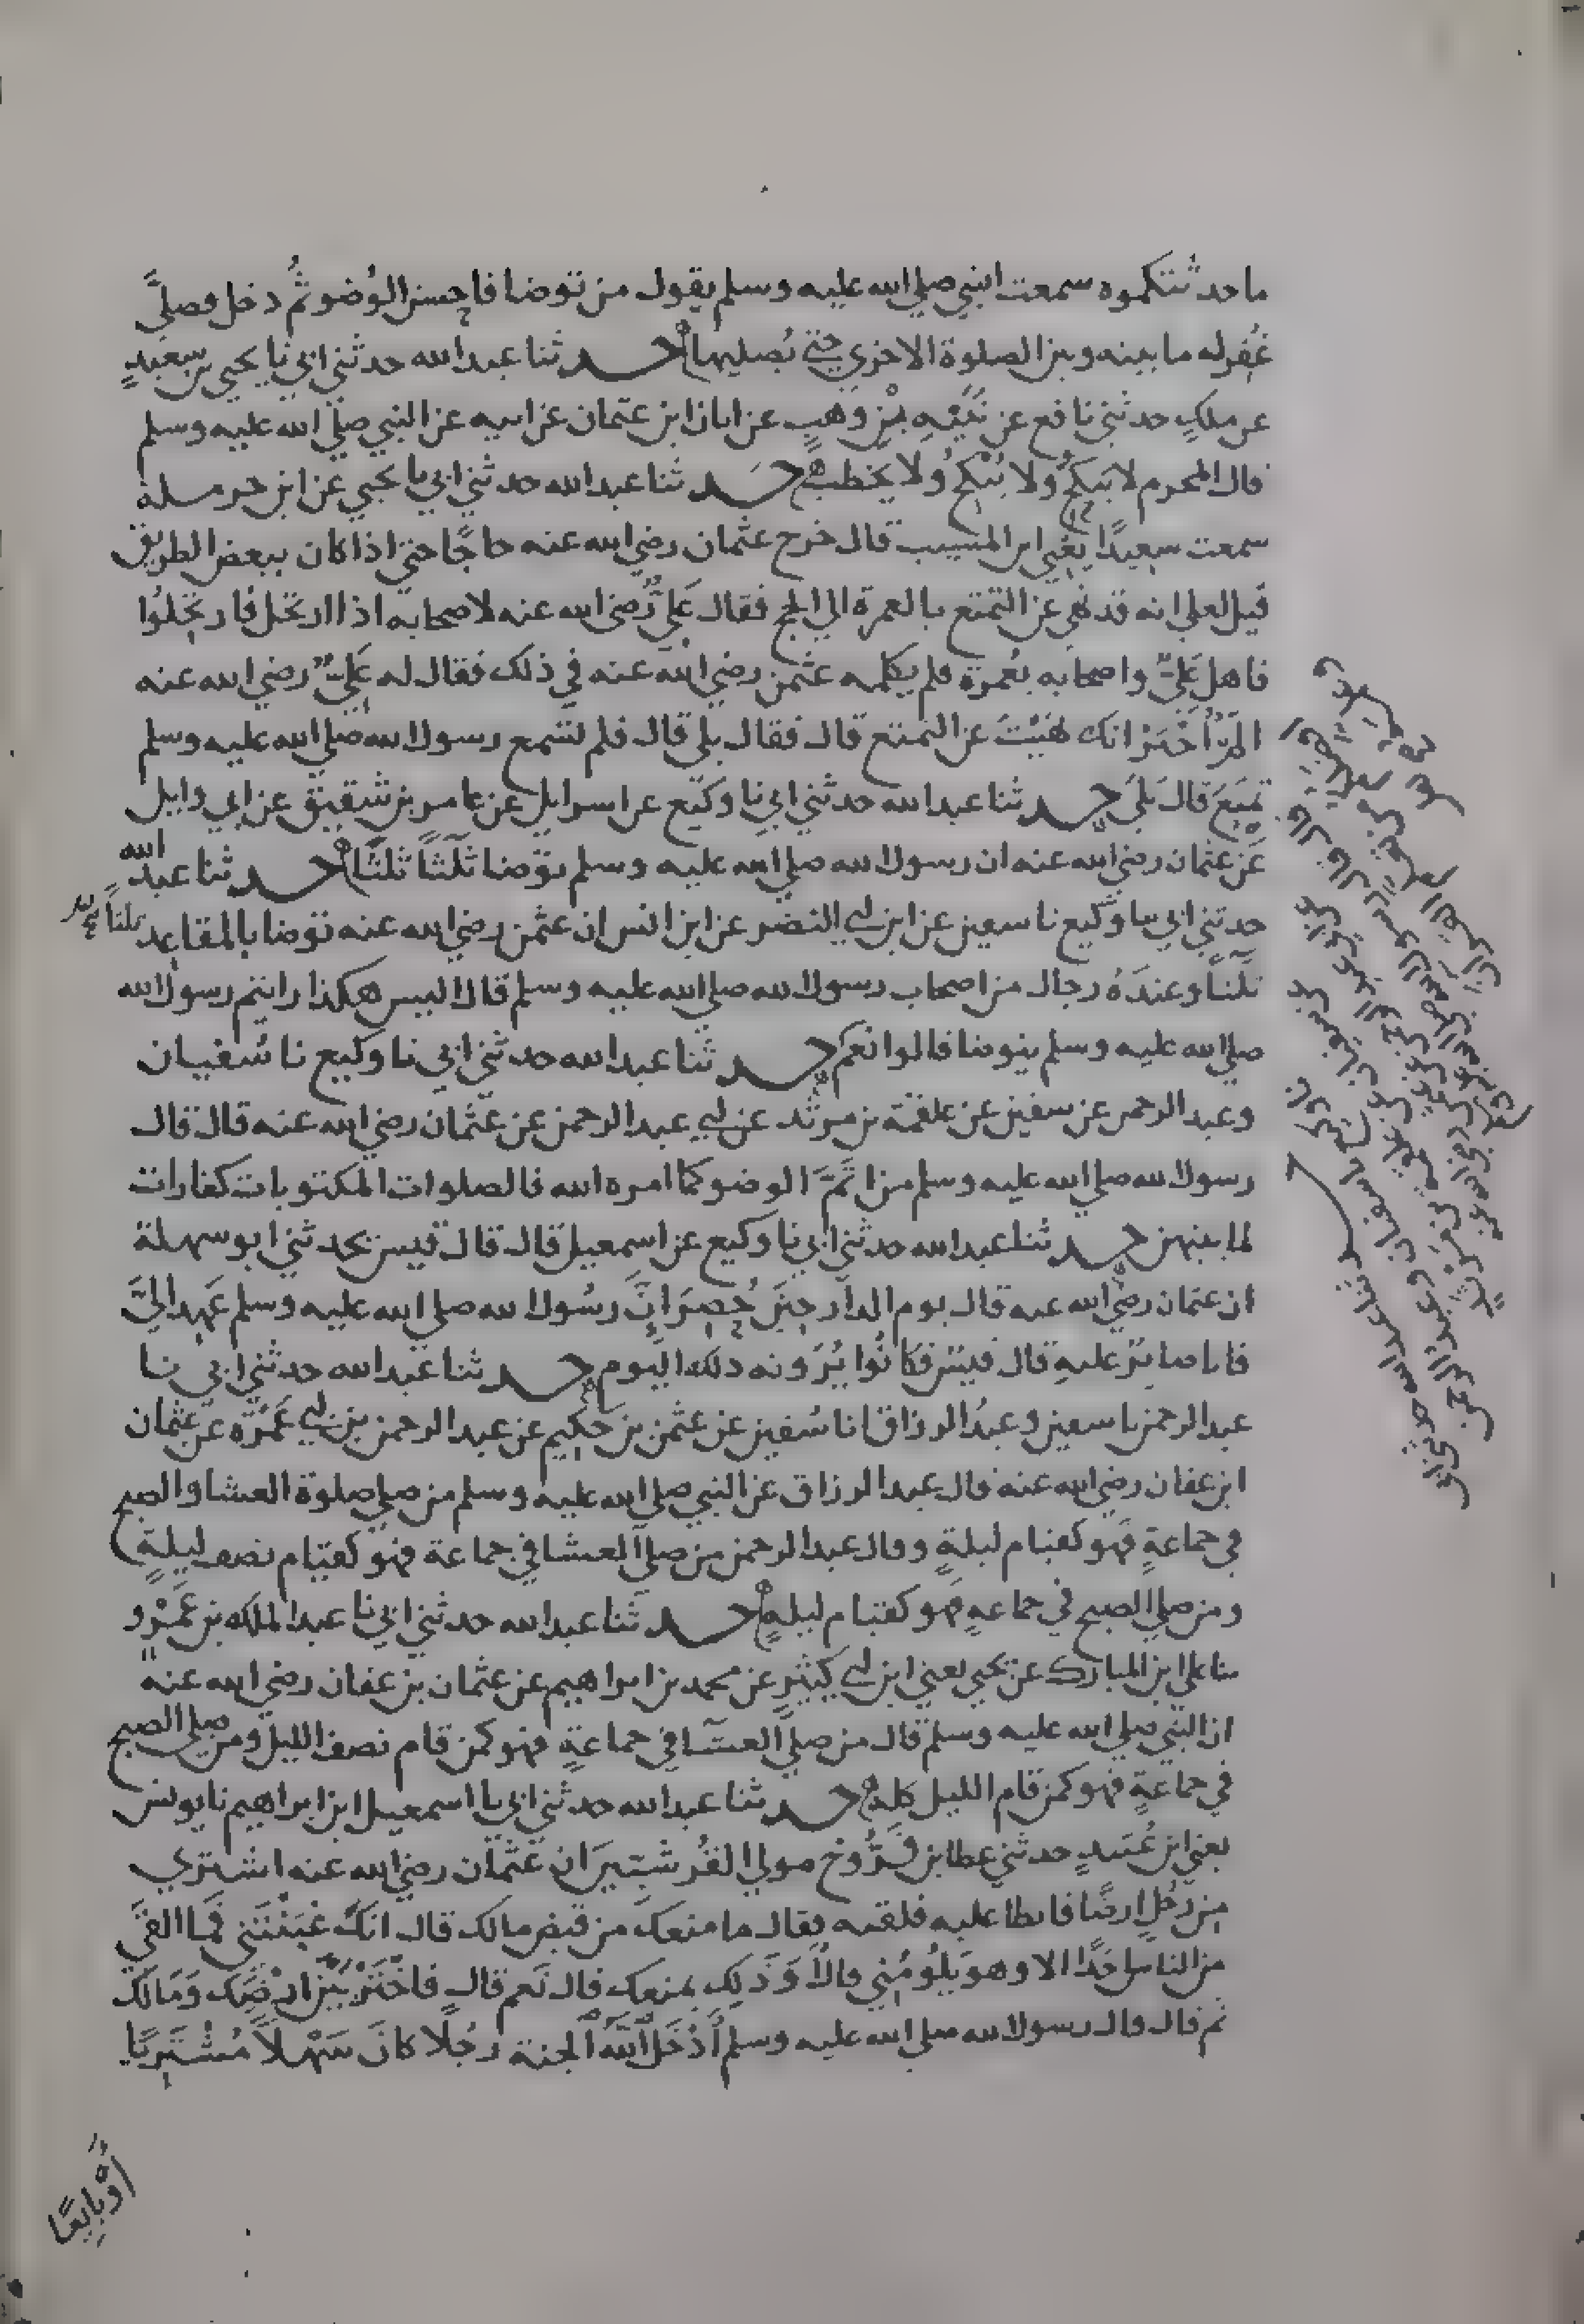 ما حدثتكموه سمعت النبي صلى الله عليه وسلم يقول من توضا فاحسن الوُضو ثُم دخل فصلىَّ
غُفِر له ما بينه وبين الصلوة الاخري حتى يُصليها حدثنا عبد الله حدثني ابي نا يحيى بن سعيدٍ
عن ملكٍ حدثني نافع عن نُبَيْهِ بْنِ وَهبٍ عن ابان ابن عثمان عن ابيه عن النبي صلى الله عليه وسلم
قال المحرم لا يَنكِحُ ولا يُنْكِحُ ولا يخطب حدثنا عبد الله حدثني ابي نا يحيى عن ابن حرملة
سمعت سعيدًا يعني ابن المسيب قال خرج عثمان رضي الله عنه حاجًا حتى اذا كان ببعض الطريق
قيل لعلي انه قد نهى عن التمتع بالعمرة الى الحج فقال عَليٌّ رضي الله عنه لاصحابه اذا ارتحل فارتحلُوا
فاهل عَليٌّ واصحابه بعُمرة فلم يكلمه عثمن رضي الله عنه في ذلك فقال له عَليٌّ رضي الله عنه
المْ أُخْبَرْ انك نَهَيْتَ عن التمتع قال فقال بلى قال فلم تسمع رسول الله صلى الله عليه وسلم
تمتع قال بَلَى حدثنا عبد الله حدثني ابي نا وكيع عن اسرايل عن عامر بن شقيق عن ابي وايل
عَن عثمان رضي الله عنه ان رسول الله صلى الله عليه وسلم توضا ثلثًا ثلثًا حدثنا عبد الله
حدثني ابي نا وكيع نا سفين عن ابن ابي النضر عن ابن انس ان عثمن رضي الله عنه توضا بالمقاعد ثلثًا
ثلثًا وعندَهُ رجال من اصحاب رسول الله صلى الله عليه وسلم قال اليس هكذا رايتم رسول الله
صلى الله عليه وسلم يتوضا قالوا نعم حدثنا عبد الله حدثني ابي نا وكيع نا سُفيان
وعبد الرحمن عن سفين عن علقمة بن مرثد عن ابي عبد الرحمن عن عثمان رضي الله عنه قال قال
رسول الله صلى الله عليه وسلم من اتَمَّ الوضو كما امره الله فالصلوات المكتوبات كفارات
لما بينهن حدثنا عبد الله حدثني ابي نا وكيع عن اسمعيل قال قال قيس فحدثني ابو سهلة
ان عثمان رضي الله عنه قال يوم الدار حِينَ حُصِرَ اِنَّ رسُول الله صلى الله عليه وسلم عَهِد الىَّ
فانا صابرٌ عليهِ قال قيس فكانُوا يُرَونه ذلك اليوم حدثنا عبد الله حدثني ابي نا
عبد الرحمن نا سفين وعبدُ الرزاق انا سُفين عن عثمن بن حَكِيم عن عبد الرحمن بن ابي عَمْرَة عن عثمان
ابن عفان رضي الله عنه قال عبد الرزاق عن النبي صلى الله عليه وسلم من صلى صلوة العشا والصبح
في جماعةٍ فهو كقيام ليلةٍ وقال عبد الرحمن من صلى العشا في جماعة فهو كقيام نصف ليلةٍ
ومن صلى الصبح في جماعةٍ فهو كقيام ليلةٍ حدثنا عبد الله حدثني ابي نا عبد الملك بن عَمْرٍو
ثنا علي ابن المبارك عن يحيى يعني ابن ابي كثيرٍ عن محمد بن ابراهيم عن عثمان بن عفان رضي الله عنه
ان النبي صلى الله عليه وسلم قال من صلى العشا في جماعةٍ فهو كمن قام نصف الليل ومن صلى الصبح
في جماعةٍ فهو كمن قام الليل كله حدثنا عبد الله حدثني ابي نا اسمعيل ابن ابراهيم نا يونس
يعني ابن عُبَيدٍ حدثني عطا بن فَرُّوخ مولى القُرشيّين ان عثمان رضي الله عنه اشترى
من رَجُلٍ ارضًا فابطا عليه فلقيه فقال ما منعك من قبض مالك قال انكَ غَبَنْتَني فما القى
من الناس احَدًا الا وهو يَلُومُني قال أوَ ذَلِكَ يمنعك قال نَعم قال فاخْتَرْ بَيْنَ ارْضِكَ وَمَالك
ثم قال قال رسول الله صلى الله عليه وسلم أَدْخَلَ اللهُ الجنة رَجُلًا كانَ سَهْلاً مُشْتَرِيًا
أَوْ بايِعًا
حدثنا عبد الله حدثني ابي
نا وكيع نا سفيان وعبد الرحمن
عن سفيان عن علقمة بن مرثدٍ
عن ابي عبد الرحمن عن عثمن رضي الله عنه
قال قال رسول الله صلى الله عليه